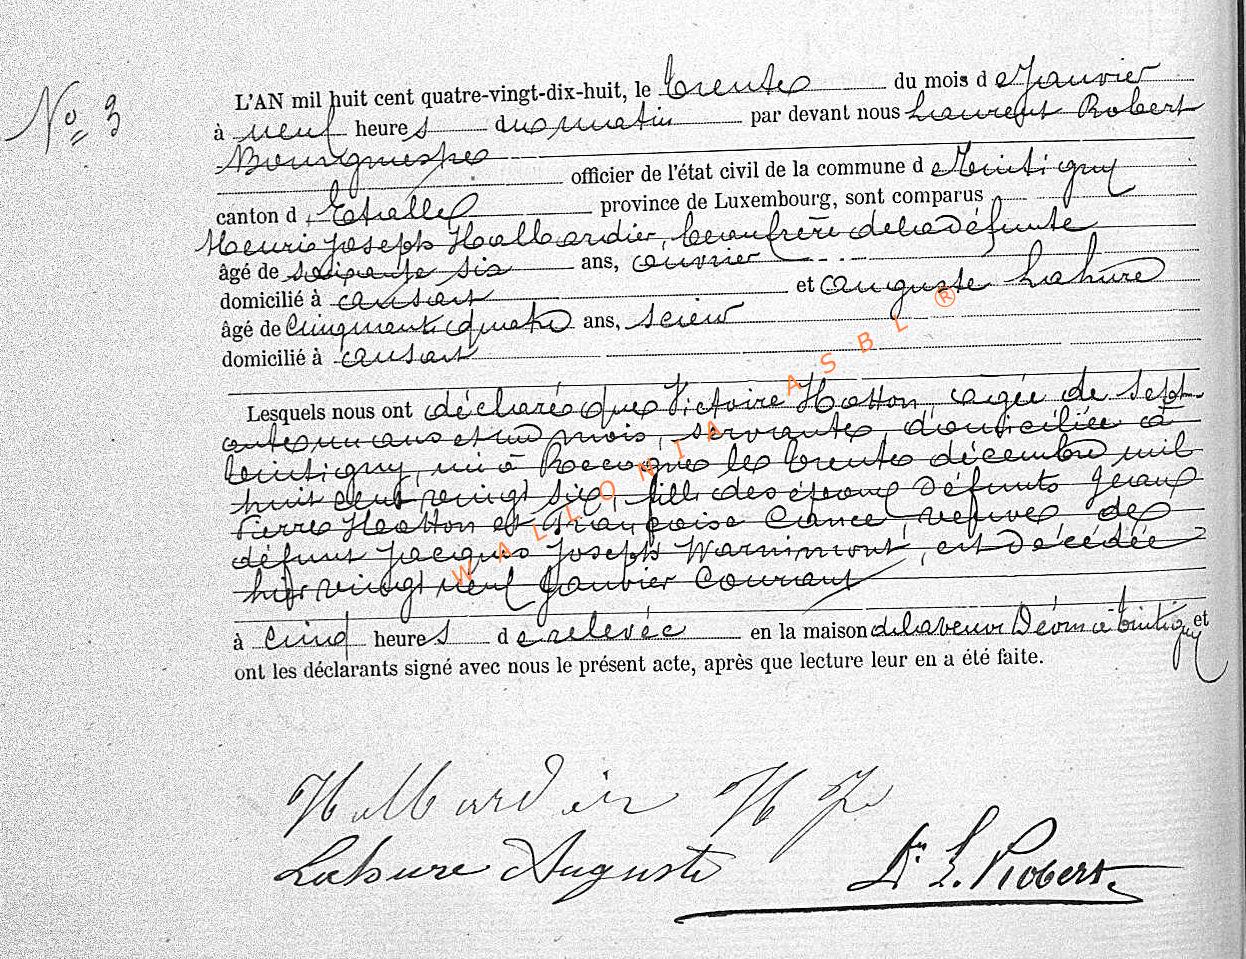 No 3
L'AN mil huit cent quatre-vingt-dix-huit, le trente du mois de Janvier
à neuf heures du matin par devant nous Laurent Robert
Bourgmestre
officier de l'état civil de la commune de Tintigny
canton d'Etalle province de Luxembourg, sont comparus
Henri Joseph Hallbardier, beaufrère de la Défunte
âgé de soixante six ans, ouvrier
domicilié à Ansart et Auguste Lahure
âgé de Cinquante quatre ans, scieur
domicilié à Ansart
Lesquels nous ont déclaré que Victoire Hotton, agée de sept
ante un ans et un mois, servante, domiciliée à
Tintigny, né à le trente décembre mil
huit cent vingt six, fille des époux Défunts Jean
Pierre Hotton et Françoise veuve de
défunt Jacques Joseph Warnimont, est Décédée
hier vingt neuf Janvier Courant
à cinq heures de relevée en la maison de la veuve à Tintigny et
ont les déclarants signé avec nous le présent acte, après que lecture leur en a été faite.
WALLONIA ASBL ®
H J
Lahure Auguste
Dr L. Robert.